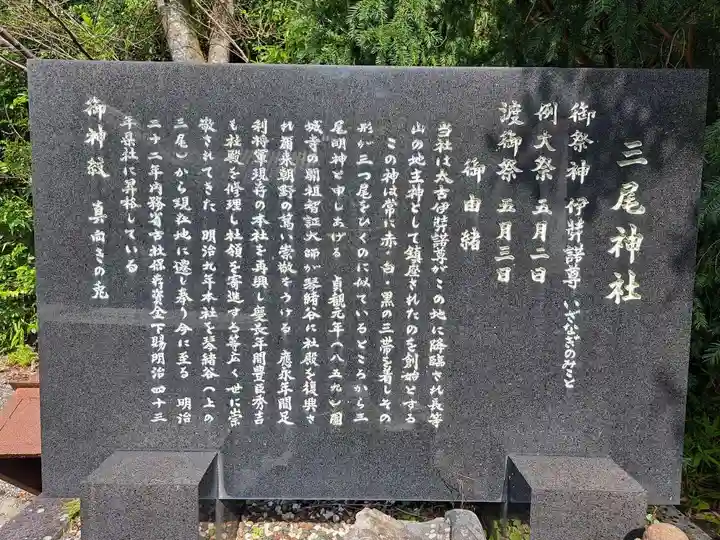 三尾神社
御祭神 伊弉諾尊 いざなぎのみこと
例大祭 五月二日
渡御祭 五月三日
御由緒
当社は太古伊弉諾尊がこの地に降臨され長等
山の地主神として鎮座されたのを創始とする
この神は常に赤・白・黒の三帯を着しその
形が三つ尾をひくのに似ているところから三
尾明神と申しあげる 貞観元年(八五九)園
城寺の開祖智証大師が琴緒谷に社殿を復興さ
れ爾来朝野の篤い崇敬をうける 應永年間足
利将軍現存の本社を再興し慶長年間豊臣秀吉
も社殿を修理し社領を寄進する等広く世に崇
敬されてきた 明治九年本社を琴緒谷(上の
三尾)から現在地に遷し奉う今に至る 明治
二十二年内務省古社保存資金下賜明治四十三
年県社に昇格している
御神紋 真向きの兎